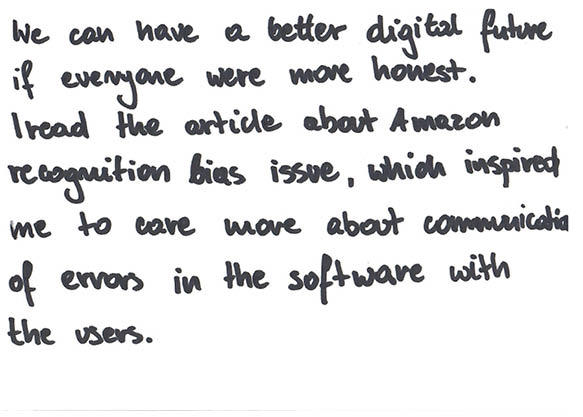 We can have a better digital future
if everyone were more honest.
I read the article about Amazon
recognition bias issue, which inspired
me to care more about communicatio
of errors in the software with
the users.